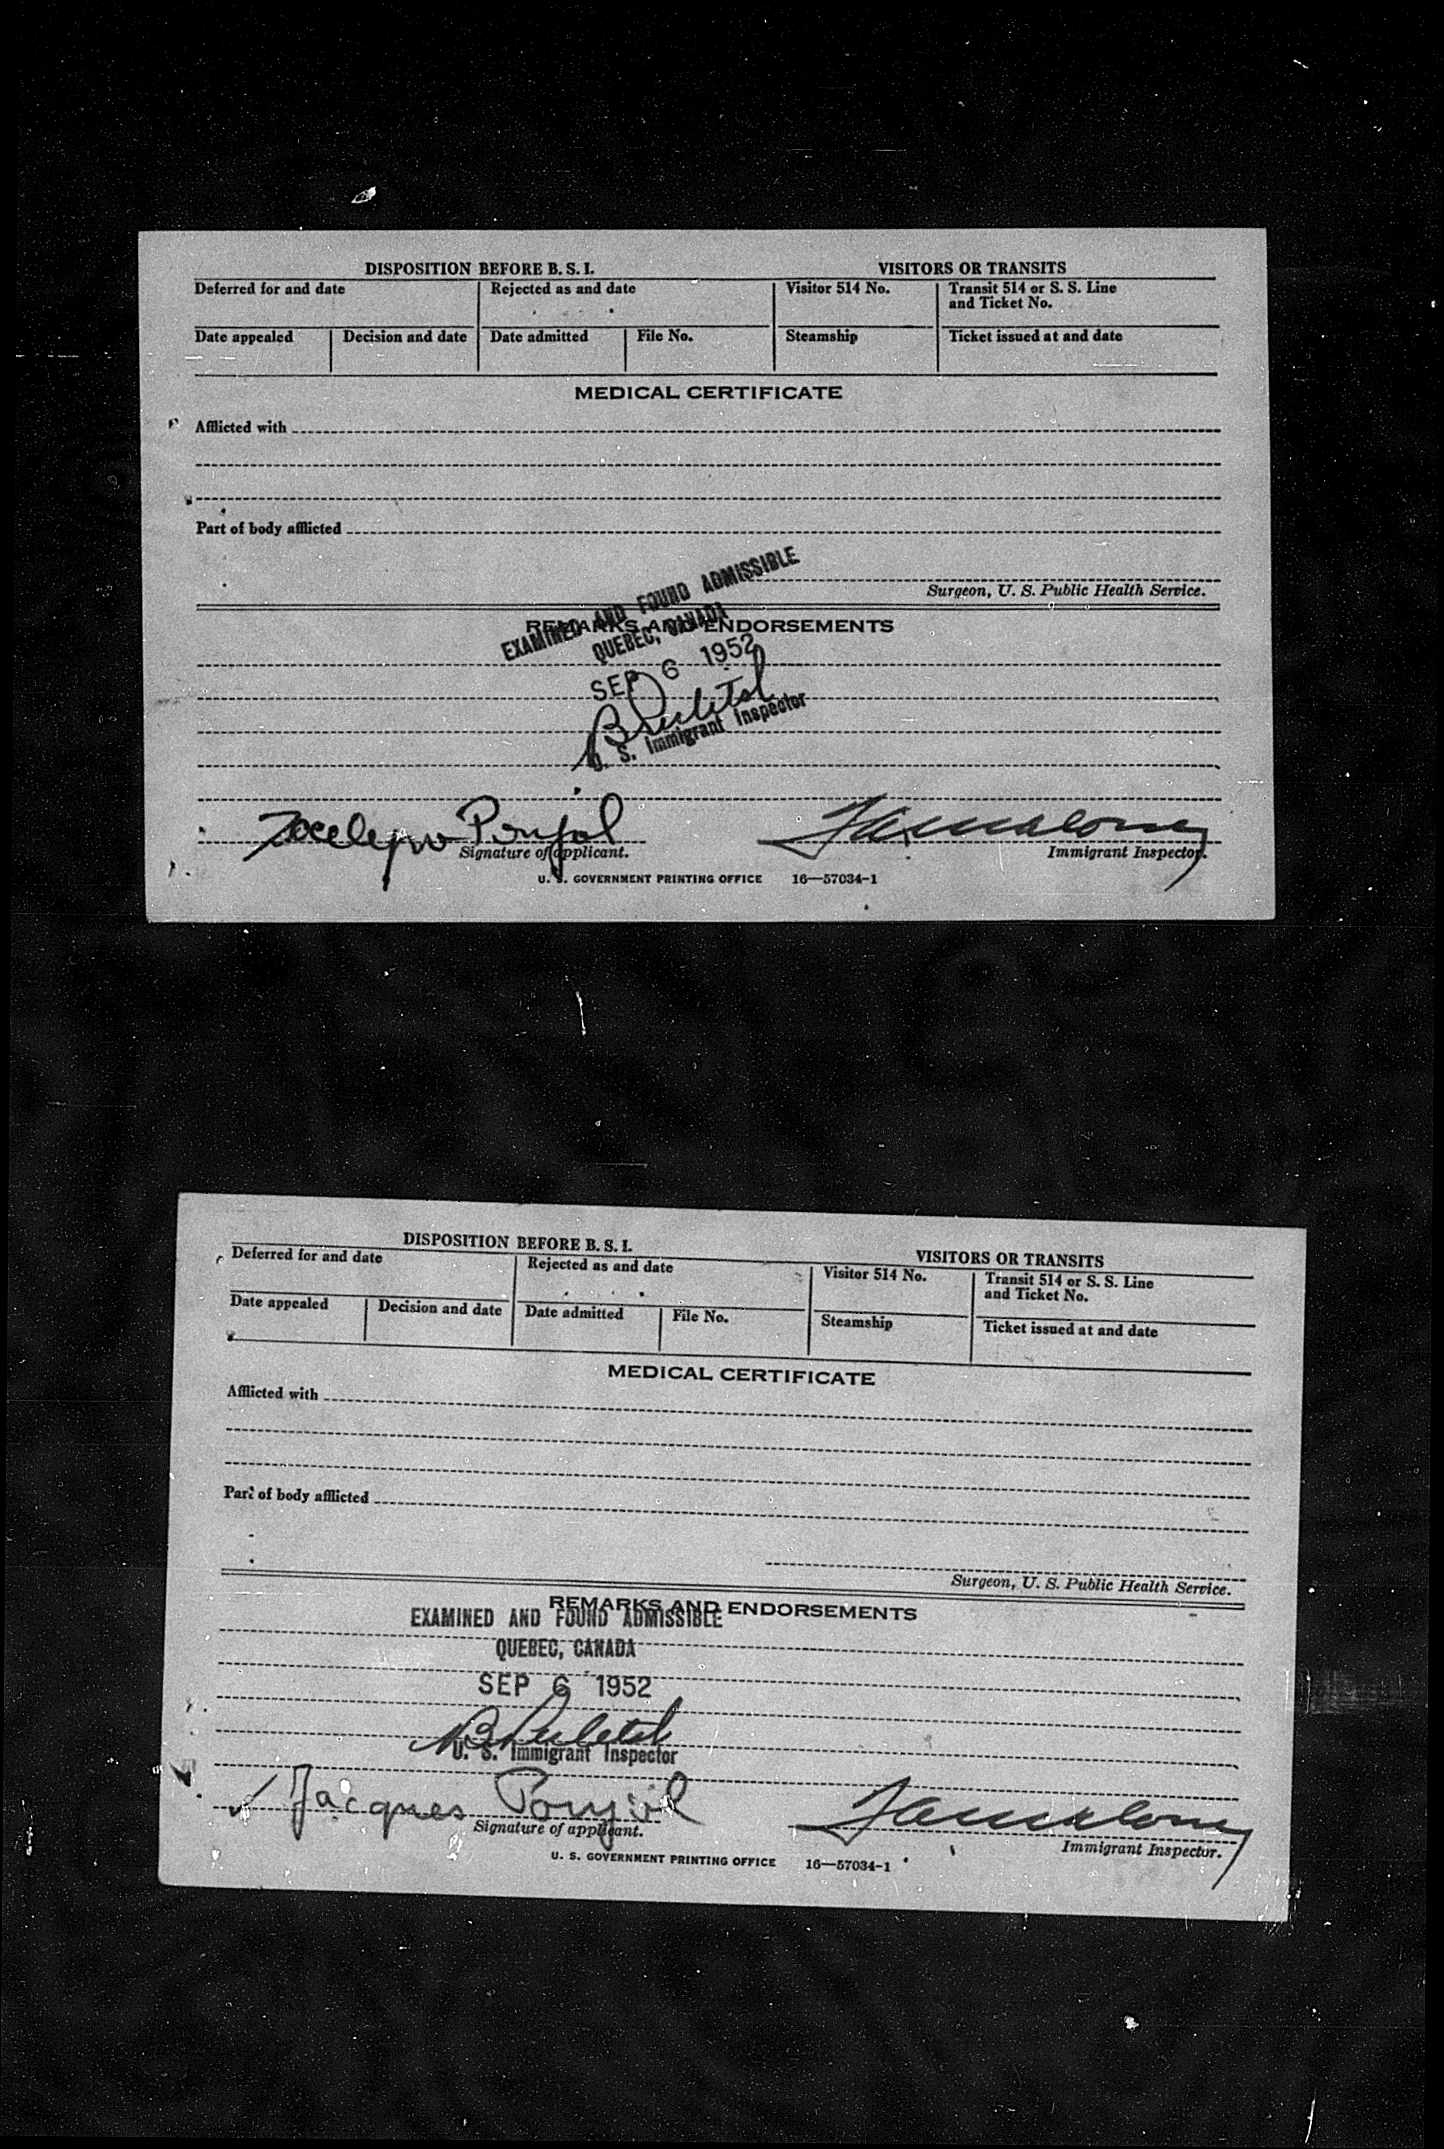 DISPOSITION BEFORE B. S. I. VISITORS OR TRANSITS
Deferred for and date Rejected as and date Visitor 514 No. Transit 514 or S. S. Line
and Ticket No.
Date appealed Decision and date Date admitted File No. Steamship Ticket issued at and date
MEDICAL CERTIFICATE
Afflicted with
Part of body afflicted
Surgeon, U. S. Public Health Service.
REMARKS AND ENDORSEMENTS
EXAMINED AND FOUND ADMISSIBLE
QUEBEC, CANADA
SEP 6 1952
U. S. Immigrant Inspector
Poujol
Signature of applicant. Immigrant Inspector.
U. S. GOVERNMENT PRINTING OFFICE 16—57034-1
DISPOSITION BEFORE B. S. I. VISITORS OR TRANSITS
Deferred for and date Rejected as and date Visitor 514 No. Transit 514 or S. S. Line
and Ticket No.
Date appealed Decision and date Date admitted File No. Steamship Ticket issued at and date
MEDICAL CERTIFICATE
Afflicted with
Part of body afflicted
Surgeon, U. S. Public Health Service.
REMARKS AND ENDORSEMENTS
EXAMINED AND FOUND ADMISSIBLE
QUEBEC, CANADA
SEP 6 1952
U. S. Immigrant Inspector
Jacques Poujol
Signature of applicant. Immigrant Inspector.
U. S. GOVERNMENT PRINTING OFFICE 16—57034-1